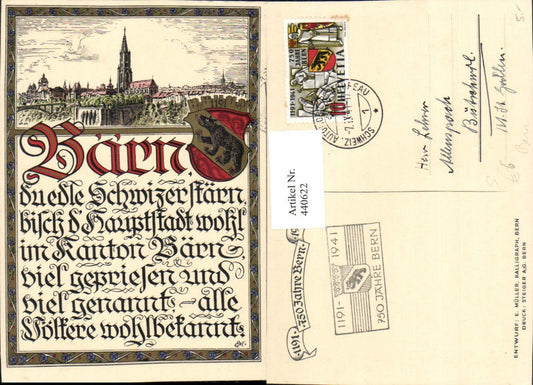 Bärn,
du edle Schwizerstärn,
bisch d Hauptstadt wohl
im Kanton Bärn,
viel gepriesen und
viel genannt - alle
Völkere wohlbekannt.
5.-
HELVETIA
10
SCHWEIZ. AUTOM
1
Herr Lehrer
Allenspach
Bütschwil
Kt. St. Gallen
Artikel Nr.
440622
1191-
750 Jahre Bern
1191-
1941
750 JAHRE BERN
ENTWURF: E. MÜLLER, KALLIGRAPH, BERN
DRUCK: STEIGER A.G. BERN